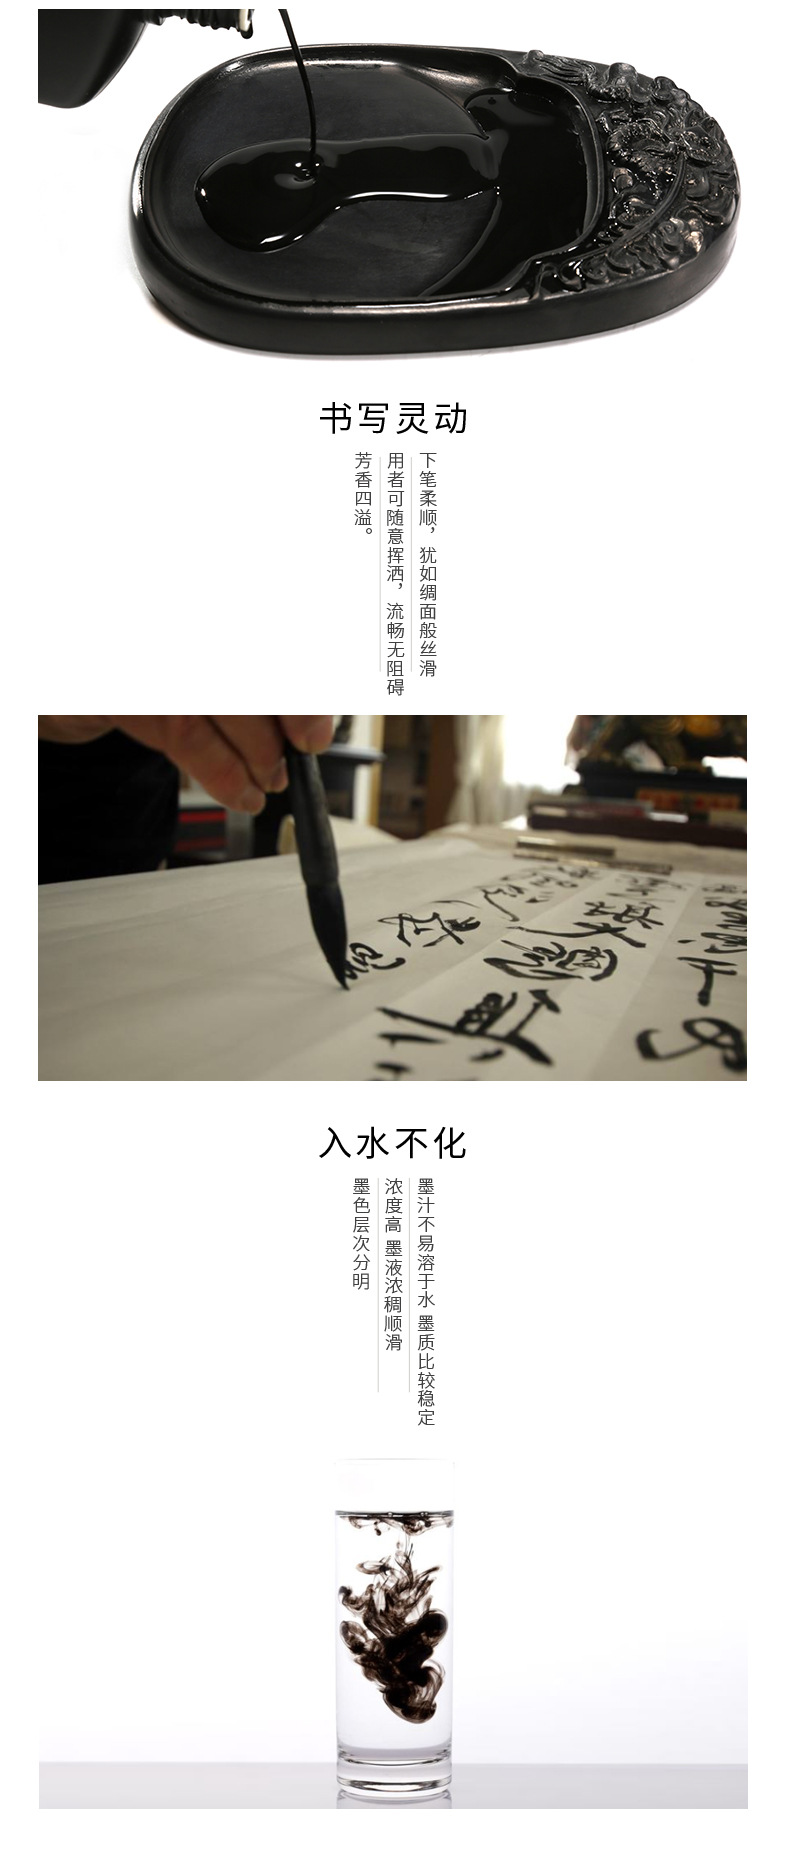 书写灵动
下笔柔顺，犹如绸面般丝滑
用者可随意挥洒，流畅无阻碍
芳香四溢。
入水不化
墨汁不易溶于水 墨质比较稳定
浓度高 墨液浓稠顺滑
墨色层次分明